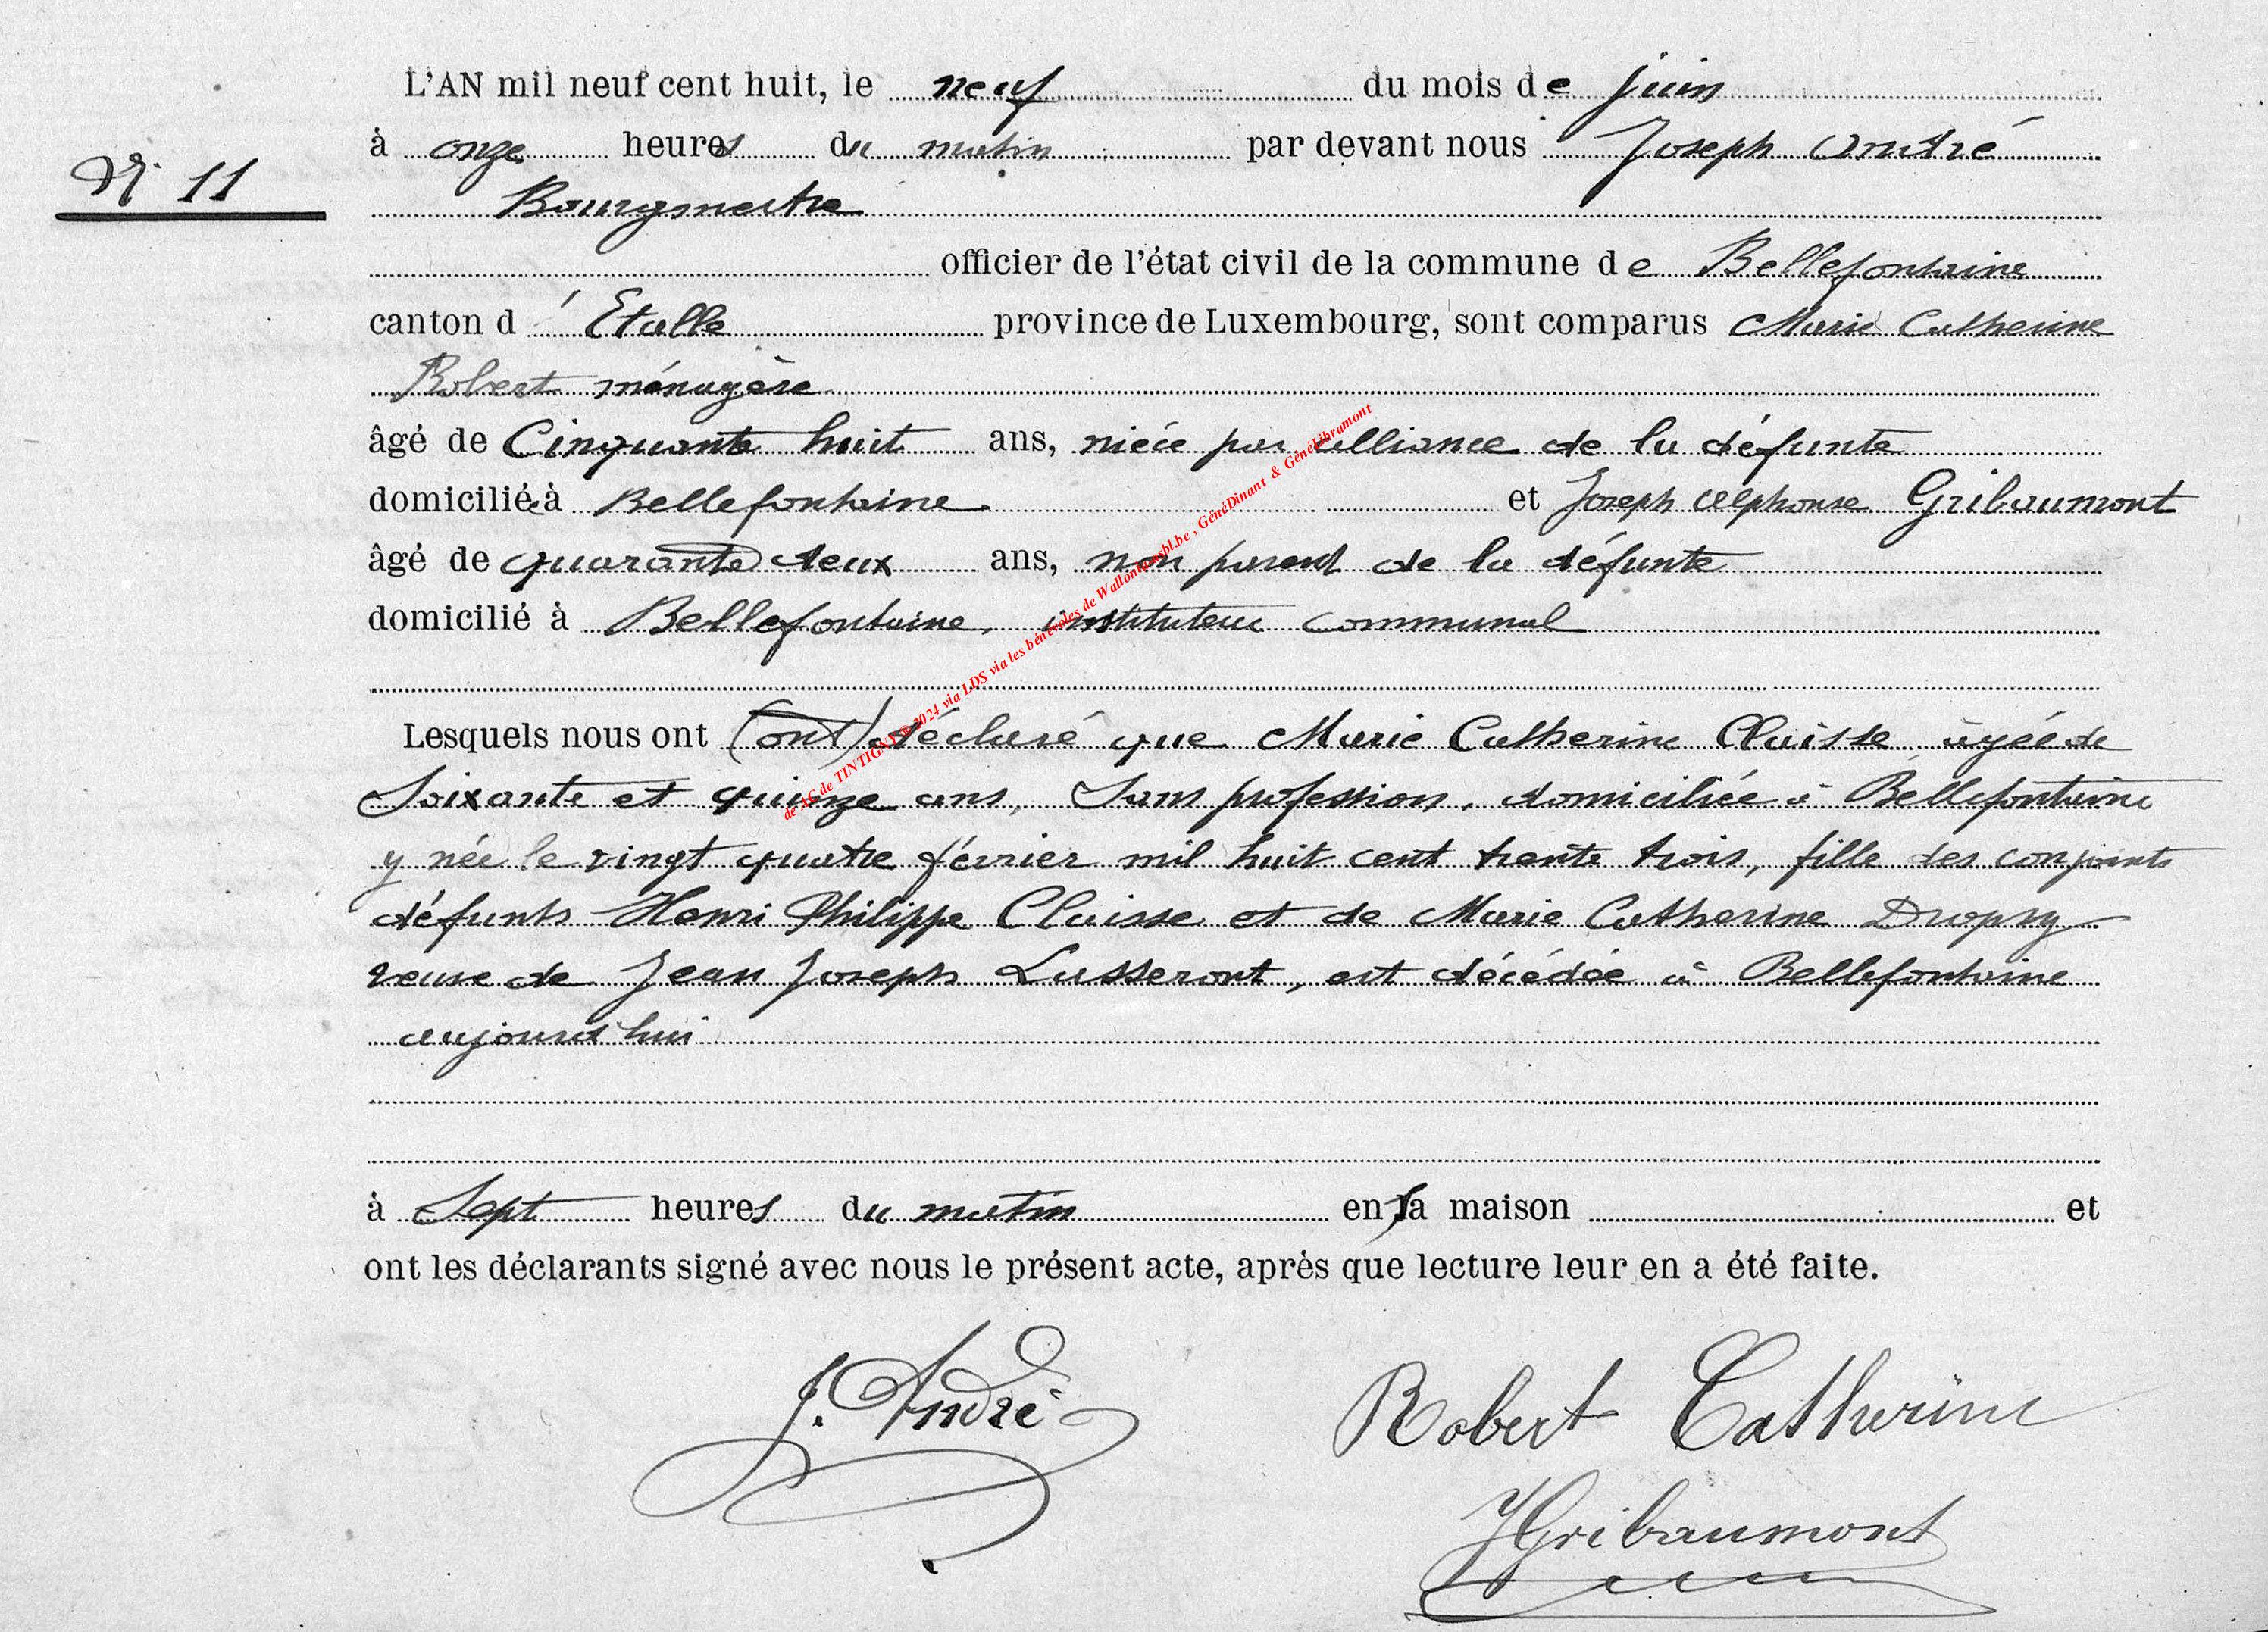 L'AN mil neuf cent huit, le neuf du mois de juin
à onze heures du matin par devant nous Joseph André
N° 11
Bourgmestre
officier de l'état civil de la commune de Bellefontaine
canton d'Etalle province de Luxembourg, sont comparus Marie Catherine
Robert ménagère
âgé de Cinquante huit ans, nièce par alliance de la défunte
domiciliée à Bellefontaine et Joseph Alphonse Gribaumont
âgé de quarante deux ans, non parent de la défunte
domicilié à Bellefontaine, instituteur communal
Lesquels nous ont (ont) déclaré que Marie Catherine Claisse âgée de
Soixante et quinze ans, Sans profession, domiciliée à Bellefontaine
y née le vingt quatre février mil huit cent trente trois, fille des conjoints
défunts Henri Philippe Claisse et de Marie Catherine Dropsy
veuve de Jean Joseph Lusseront, est décédée à Bellefontaine
aujourd'hui
à Sept heures du matin en sa maison et
ont les déclarants signé avec nous le présent acte, après que lecture leur en a été faite.
J. André
Robert Catherine
JGribaumont
de AC de TINTIGNY © 2024 via LDS via les bénévoles de Wallonia asbl.be, GénéDinant & GénéLibramont